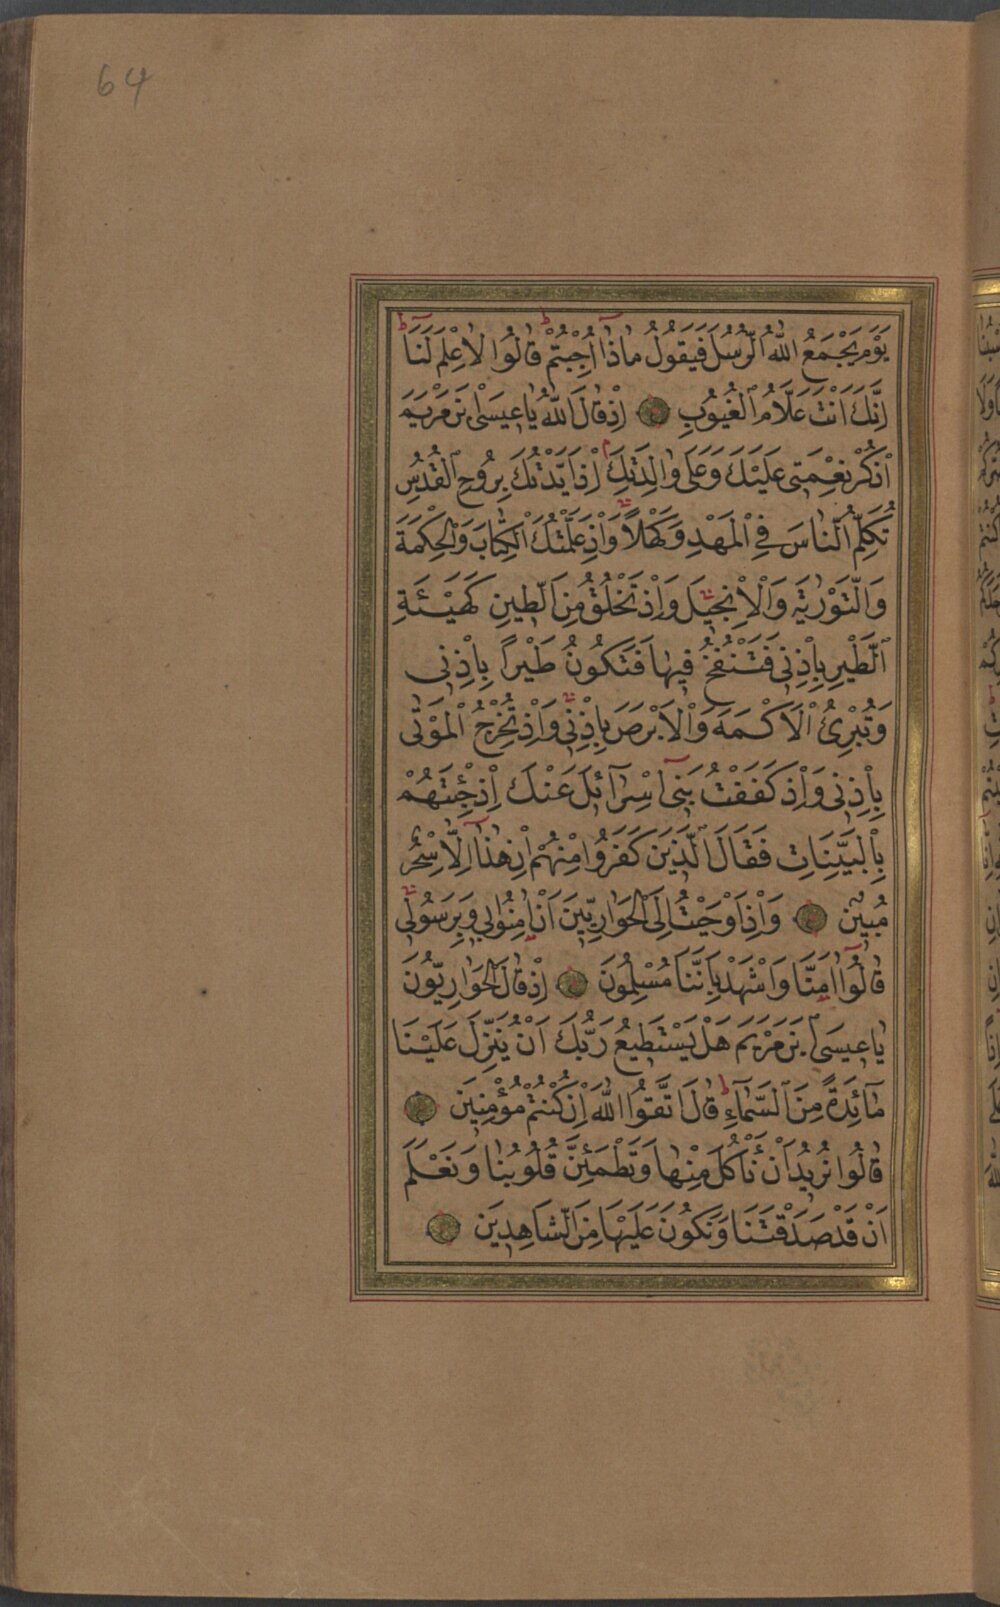 64
يَوْمَ يَجْمَعُ اللّٰهُ الرُّسُلَ فَيَقُولُ مَاذَٓا اُجِبْتُمْ قَالُوا لَا عِلْمَ لَنَا
اِنَّكَ اَنْتَ عَلَّامُ الْغُيُوبِ اِذْ قَالَ اللّٰهُ يَا عِيسَى ابْنَ مَرْيَمَ
اذْكُرْ نِعْمَتِي عَلَيْكَ وَعَلٰى وَالِدَتِكَ اِذْ اَيَّدْتُكَ بِرُوحِ الْقُدُسِ
تُكَلِّمُ النَّاسَ فِي الْمَهْدِ وَكَهْلًا وَاِذْ عَلَّمْتُكَ الْكِتَابَ وَالْحِكْمَةَ
وَالتَّوْرٰيةَ وَالْاِنْجِيلَ وَاِذْ تَخْلُقُ مِنَ الطِّينِ كَهَيْـَٔةِ
الطَّيْرِ بِاِذْنِي فَتَنْفُخُ فِيهَا فَتَكُونُ طَيْرًا بِاِذْنِي
وَتُبْرِئُ الْاَكْمَهَ وَالْاَبْرَصَ بِاِذْنِي وَاِذْ تُخْرِجُ الْمَوْتٰى
بِاِذْنِي وَاِذْ كَفَفْتُ بَنِٓي اِسْرَٓائِلَ عَنْكَ اِذْ جِئْتَهُمْ
بِالْبَيِّنَاتِ فَقَالَ الَّذِينَ كَفَرُوا مِنْهُمْ اِنْ هٰذَٓا اِلَّا سِحْرٌ
مُبِينٌ وَاِذْ اَوْحَيْتُ اِلَى الْحَوَارِيّٖنَ اَنْ اٰمِنُوا بِي وَبِرَسُولِي
قَالُٓوا اٰمَنَّا وَاشْهَدْ بِاَنَّنَا مُسْلِمُونَ اِذْ قَالَ الْحَوَارِيُّونَ
يَا عِيسَى ابْنَ مَرْيَمَ هَلْ يَسْتَطِيعُ رَبُّكَ اَنْ يُنَزِّلَ عَلَيْنَا
مَٓائِدَةً مِنَ السَّمَٓاءِ قَالَ اتَّقُوا اللّٰهَ اِنْ كُنْتُمْ مُؤْمِنِينَ
قَالُوا نُرِيدُ اَنْ نَأْكُلَ مِنْهَا وَتَطْمَئِنَّ قُلُوبُنَا وَنَعْلَمَ
اَنْ قَدْ صَدَقْتَنَا وَنَكُونَ عَلَيْهَا مِنَ الشَّاهِدِينَ